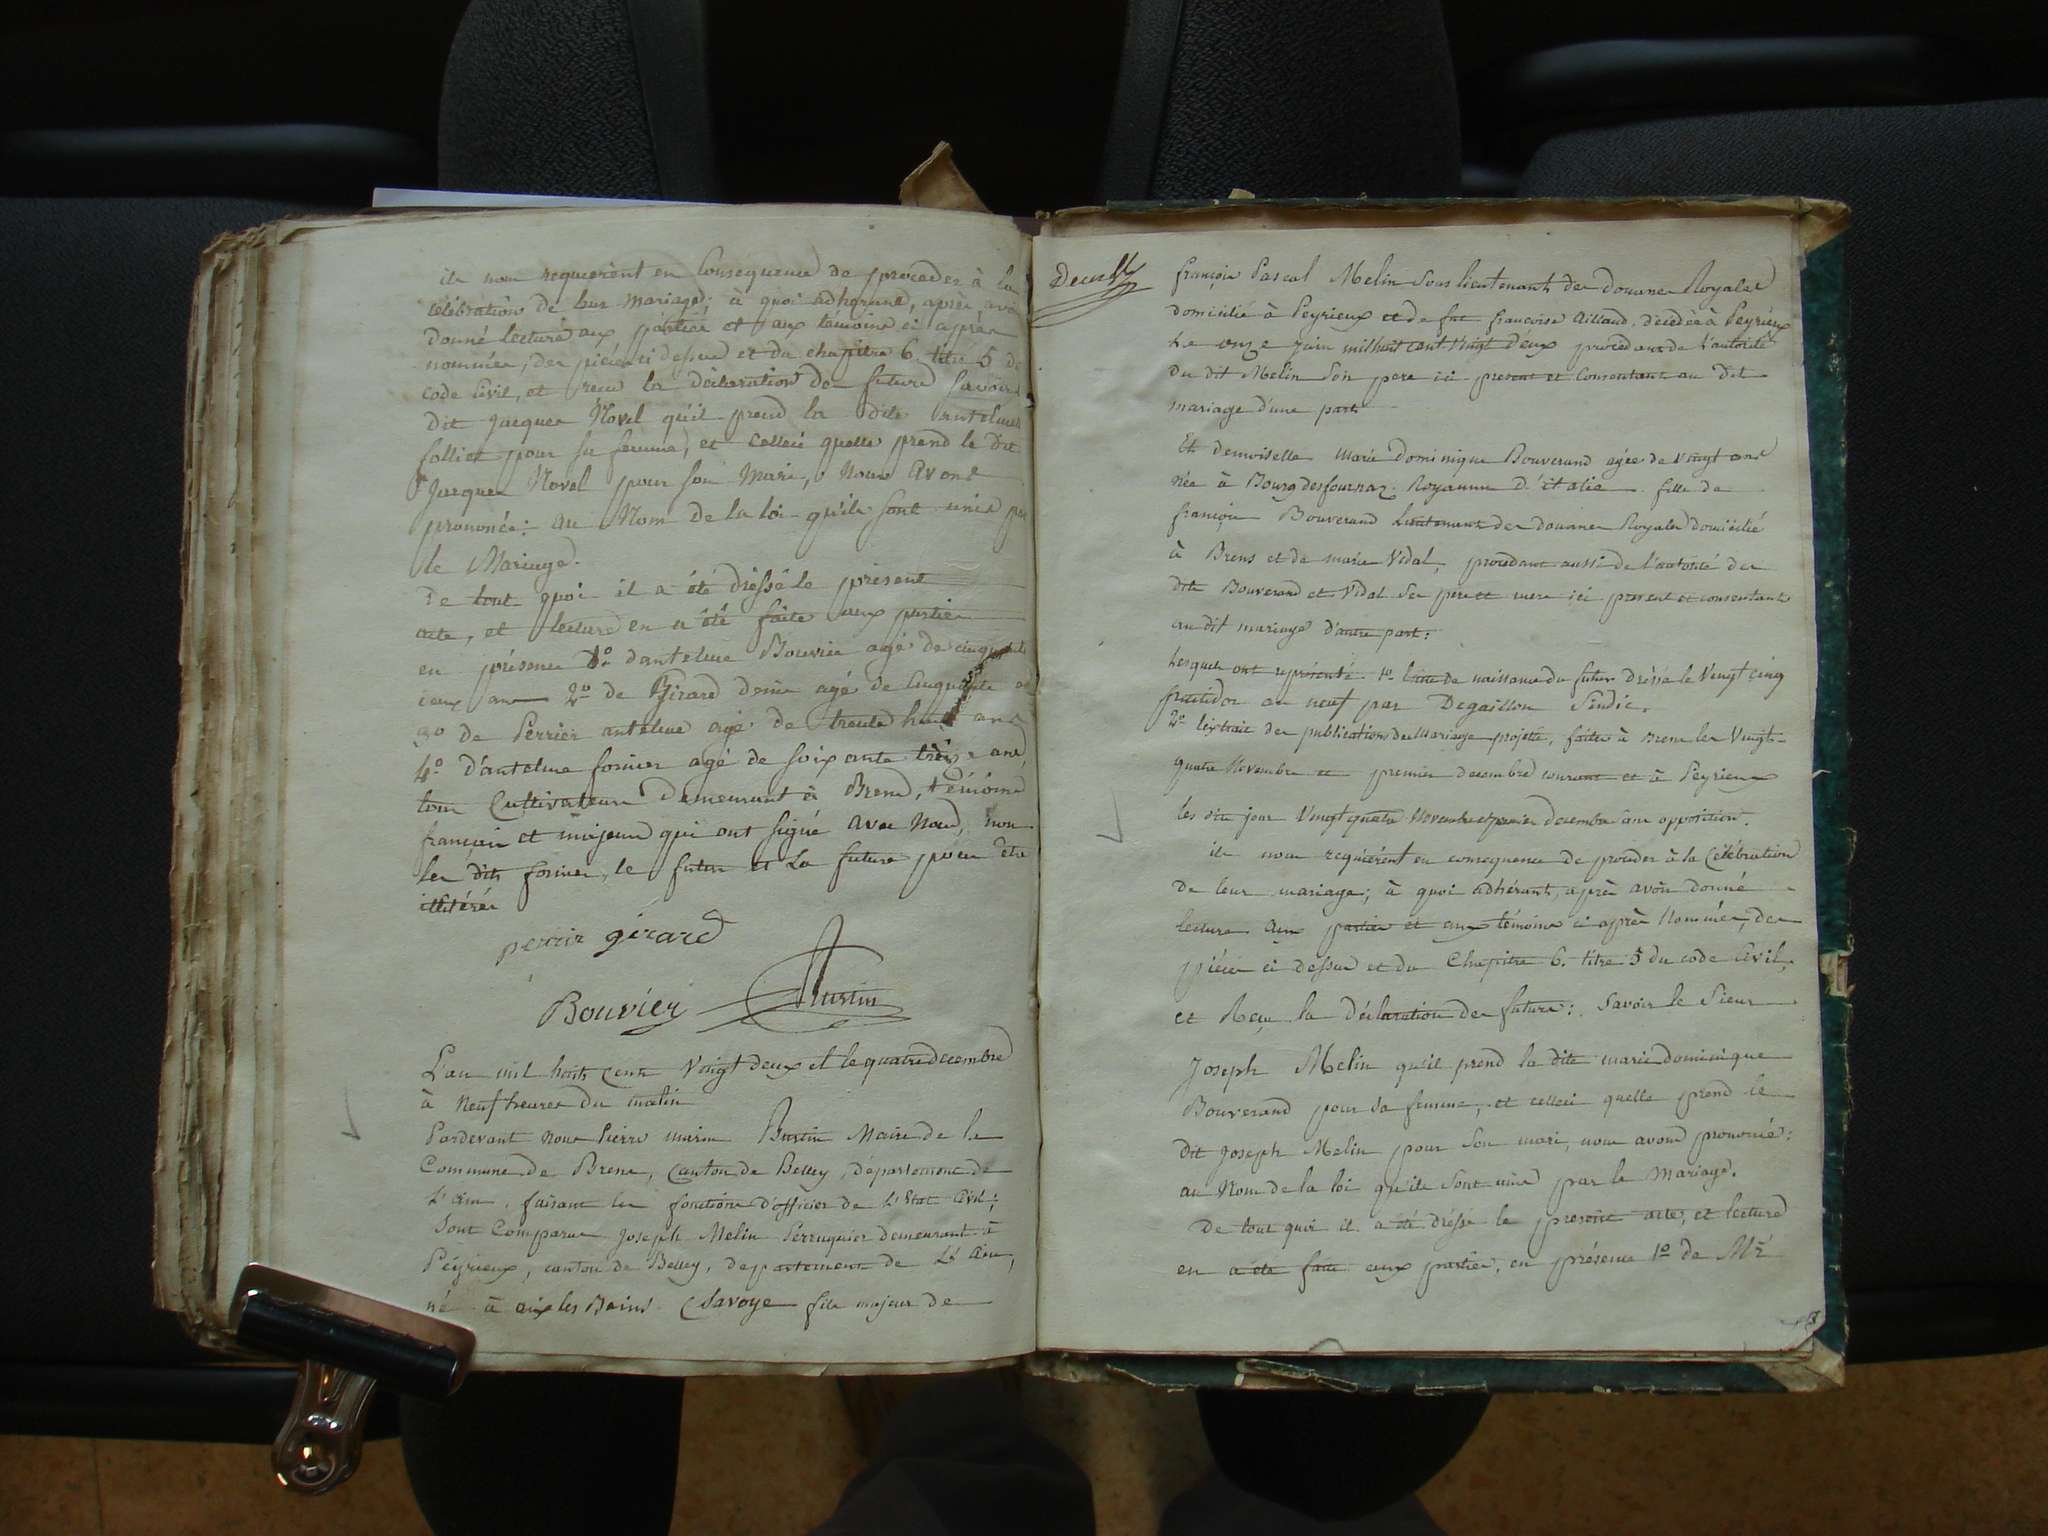 ils nous requierent en Consequence de proceder à la
célébration de leur mariage; à quoi adhérant, après avoir
donné lecture aux parties et aux témoins ci après
nommés, des pièces ci dessus et du chapitre 6 titre 5 du
code Civil, et reçu la déclaration des futurs savoir
dit jacques Novel qu'il prend la dite antelme
follier pour sa femme, et celleci quelle prend le dit
Jacques Novel pour son Mari, Nous avons
prononcé: au Nom de la loi qu'ils sont unis par
le Mariage.
De tout quoi il a été dréssé le présent
acte, et lecture en a été faite aux parties
en présence 1º d'antelme Bouvier agé de cinquante
ans 2º de Girard agé de Cinquante
3º de Perrier antelme agé de trente huit ans
4º d'antelme fornier agé de soixante treize ans
tous Cultivateurs Demeurant à Brens, témoins
français et majeurs qui ont signé avec Nous, non
les dits fornier, le futur et La future pour être
illitérés
perrier girard
Bouvier Burtin
L'an mil huit cent Vingt deux et le quatre decembre
à Neuf heures du matin
Pardevant nous Pierre marin Burtin Maire de la
Commune de Brens, Canton de Belley, département de
L'ain, faisant les fonctions d'officier de L'Etat Civil;
Sont Comparus Joseph Melin Perruquier demeurant à
Peyrieux, canton de Belley, departement de L'Ain,
né à aix les Bains Savoye fils majeur de
françois Pascal Melin Sous lieutenant des douanes Royales
domicilié à Peyrieux et de fut françoise Aillaud, décédée à Peyrieux
Le onze Juin mil huit cent Vingt deux procedant de l'autorité
du dit Melin Son pere ici present et Consentant au Dit
mariage d'une part
Et demoiselle Marie Dominique Bouverand agée de Vingt ans
née à Bourg desfournaz Royaume D'italie fille de
françois Bouverand Lieutenant des douanes Royales domicilié
à Brens et de marie Vidal, procedant aussi de l'autorité des
dits Bouverand et Vidal Ses pere et mere ici present et consentant
au dit mariage d'autre part:
Lesquels ont représenté 1º l'acte de naissance du futur dréssé le Vingt Cinq
fructidor an neuf par Degaillon Sindic,
2º l'extrait des publications du Mariage projetté, faites à Brens les Vingt-
quatre Novembre et premier decembre courant et à Peyrieux
les dits jour Vingt quatre Novembre et premier decembre sans opposition.
ils nous requièrént en consequence de proceder à la Célébration
de leur mariage; à quoi adhérant, après avoir donné
lecture aux parties et aux témoins ci après Nommés, des
pièces ci dessus et du Chapitre 6. titre 5 du code Civil,
et Reçu la déclaration des futurs: Savoir le Sieur
Joseph Melin qu'il prend la dite marie dominique
Bouverand pour sa femme, et celleci quelle prend le
dit Joseph Melin pour Son mari, nous avons prononcé:
au Nom de la loi qu'ils Sont unis par le Mariage.
De tout quoi il a été dréssé le present acte, et lecture
en a été faite aux parties, en présence 1º de Mr